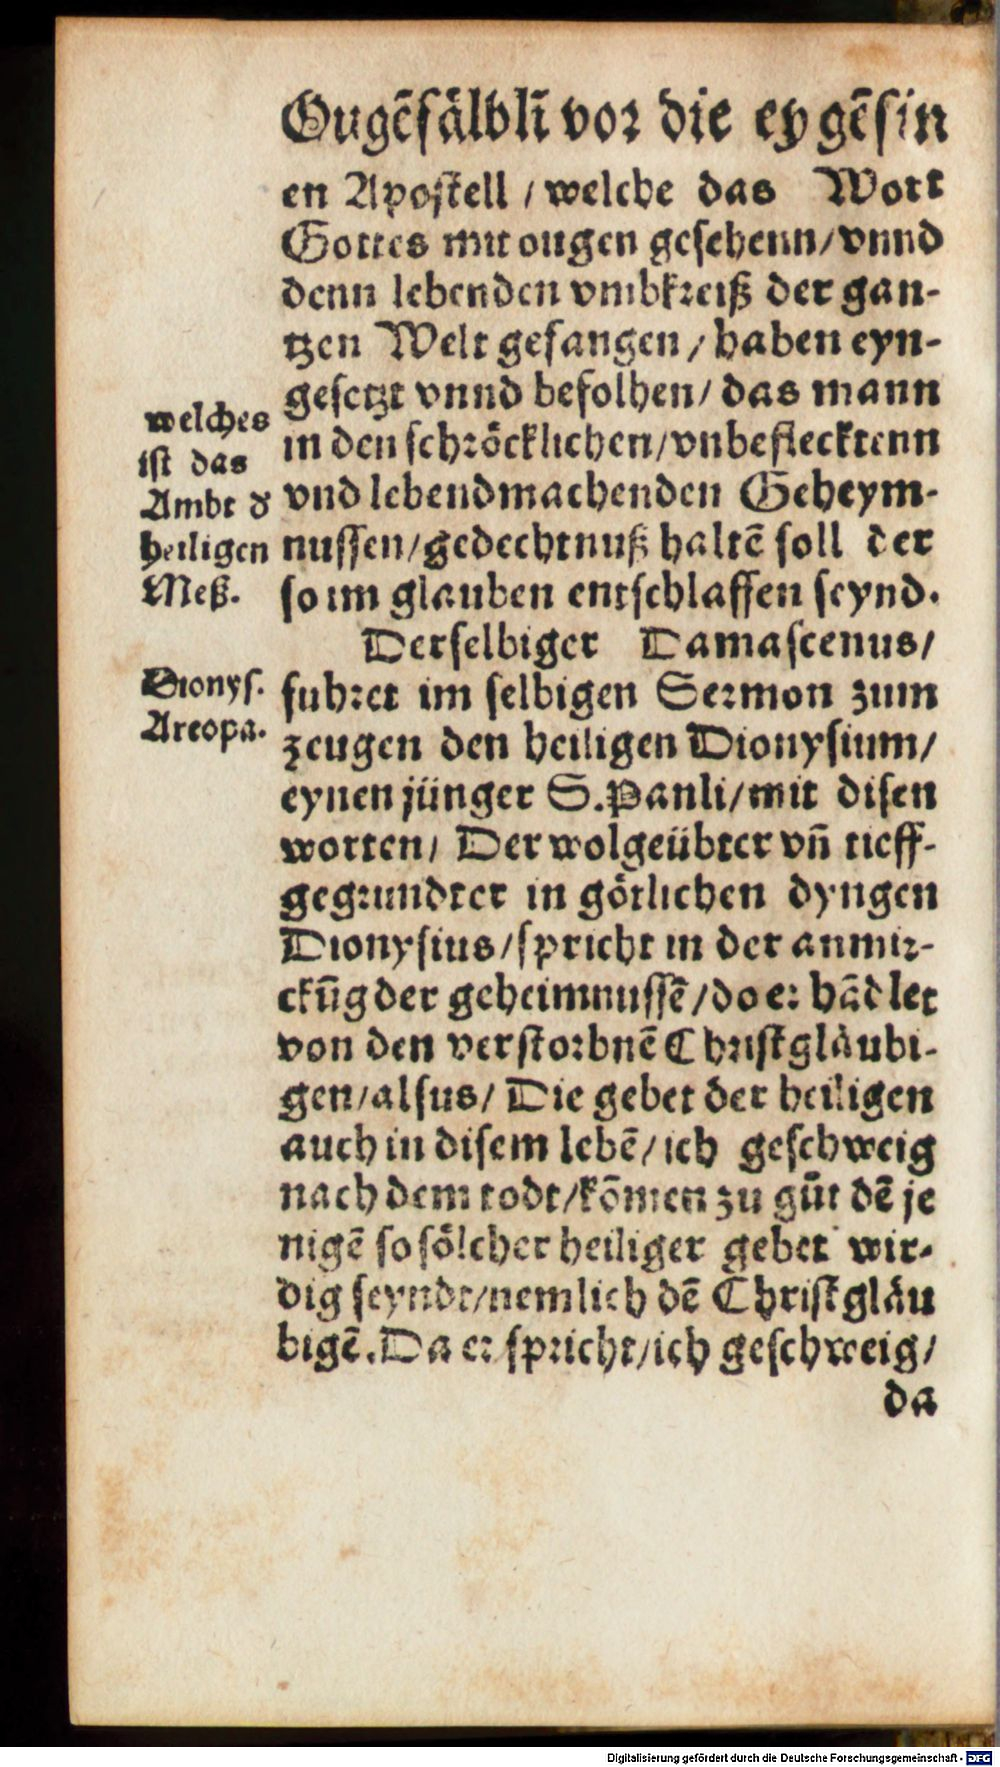 Ougēsälblī vor die eygēsin
en Apostell / welche das Wort
Gottes mit ougen gesehenn/vnnd
denn lebenden vmbkreiß der gan-
tzen Welt gefangen / haben eyn-
gesetzt vnnd befolhen/ das mann
in den schröcklichen/vnbefleckten̄n
vnd lebendmachenden Geheym-
nussen/gedechtnuß haltē soll der
so im glauben entschlaffen seynd.
welches
ist das
Ambt d
heiligen
Meß.
Derselbiger Damascenus/
fuhret im selbigen Sermon zum
zeugen den heiligen Dionysium/
eynen jünger S.Pauli/mit disen
worten/ Der wolgeübter vn̄ tieff-
gegrundter in götlichen dyngen
Dionysius/spricht in der anmir-
ckūg der geheimnussē/do er hādlet
von den verstorbnē Christgläubi-
gen/alsus/ Die gebet der heiligen
auch in disem lebē/ ich geschweig
nach dem todt/kōmen zu gůt dē je
nigē so sölcher heiliger gebet wir-
dig seyndt/nemlich dē Christgläu
bigē.Da er spricht/ich geschweig/
da
Dionys.
Areopa.
Digitalisierung gefördert durch die Deutsche Forschungsgemeinschaft - DFG